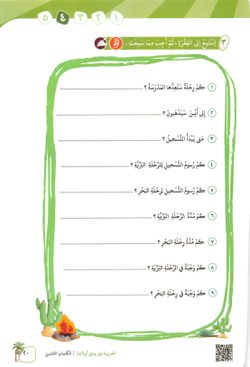 ١ ٢ ٣ ٤ ٥
٣ اِسْتَمِعْ إِلَى الفِقْرَةِ، ثُمَّ أَجِبْ مِمَّا سَمِعْتَ.
١ كَمْ رِحْلَةً سَتُعِدُّهَا المَدْرَسَةُ؟
٢ إِلَى أَيْنَ سَيَذْهَبُونَ؟
٣ مَتَى يَبْدَأُ التَّسْجِيلُ؟
٤ كَمْ رُسُومُ التَّسْجِيلِ لِلرِّحْلَةِ البَرِّيَّةِ؟
٥ كَمْ رُسُومُ التَّسْجِيلِ لِرِحْلَةِ البَحْرِ؟
٦ كَمْ مُدَّةُ الرِّحْلَةِ البَرِّيَّةِ؟
٧ كَمْ مُدَّةُ رِحْلَةِ البَحْرِ؟
٨ كَمْ وَجْبَةً فِي الرِّحْلَةِ البَرِّيَّةِ؟
٩ كَمْ وَجْبَةً فِي رِحْلَةِ البَحْرِ؟
٢٠ العربية بين يدي أولادنا | الكتاب الثامن